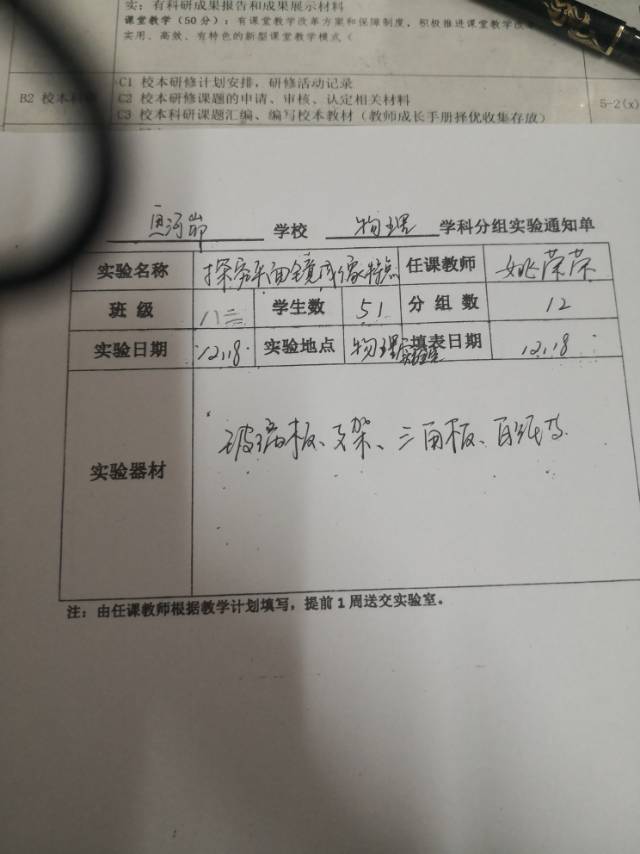 实：有科研成果报告和成果展示材料
课堂教学（50分）：有课堂教学改革方案和保障制度，积极推进课堂教学改
实用、高效、有特色的新型课堂教学模式（
C1 校本研修计划安排，研修活动记录
B2 校本科研 C2 校本研修课题的申请、审核、认定相关材料 5-2(x)
C3 校本科研课题汇编、编写校本教材（教师成长手册择优收集存放）
学校 物理 学科分组实验通知单
实验名称 探究平面镜成像特点 任课教师 姚荣荣
班 级 八三 学生数 51 分 组 数 12
实验日期 12.18 实验地点 物理实验室 填表日期 12.18
实验器材 玻璃板、支架、三角板、白纸
注：由任课教师根据教学计划填写，提前1周送交实验室。